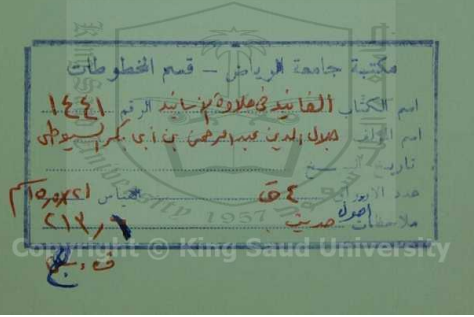 مكتبة جامعة الرياض - قسم المخطوطات
اسم الكتاب الفانيد في حلاوة الأسانيد الرقم ١٤٤١
اسم المؤلف جلال الدين عبد الرحمن بن أبي بكر السيوطي
تاريخ النسخ
عدد الأوراق ٤ ق القياس ٢١×١٥,٥ سم
ملاحظات أصول حديث ٢١٣٫١
Copyright © King Saud University
1957